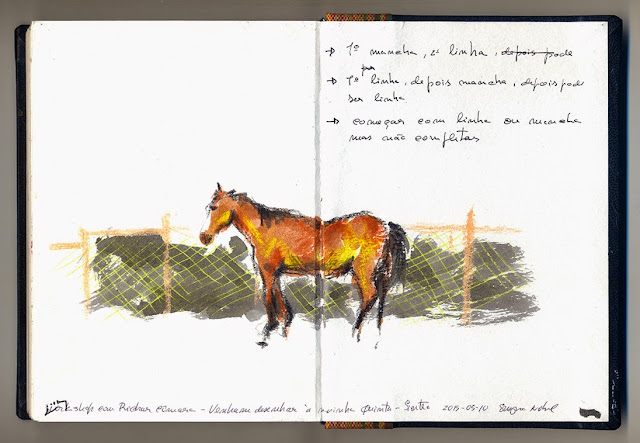 → 1º mancha, 2ª linha, depois pode
→ 1º linha, depois mancha, depois pode
ser linha
→ começar com linha ou mancha
mas não completas
Workshop com - Venham desenhar à minha Quinta - 2015-05-10